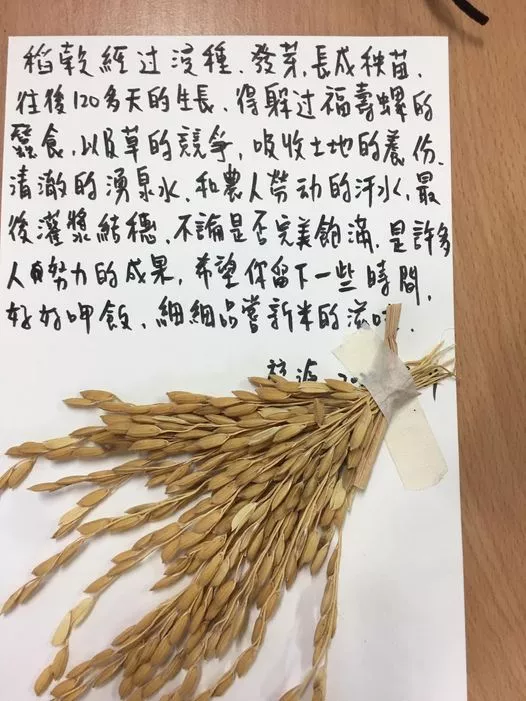 稻乾經过浸種、發芽,長成秧苗,
往後120多天的生長、得躲过福壽螺的
蠶食,以及草的競爭,吸收土地的養份、
清澈的湧泉水、和農人勞动的汗水,最
後灌漿結穗,不論是否完美飽滿,是許多
人員努力的成果,希望你留下一些時間,
好好呷飯、細細品嘗新米的滋味.